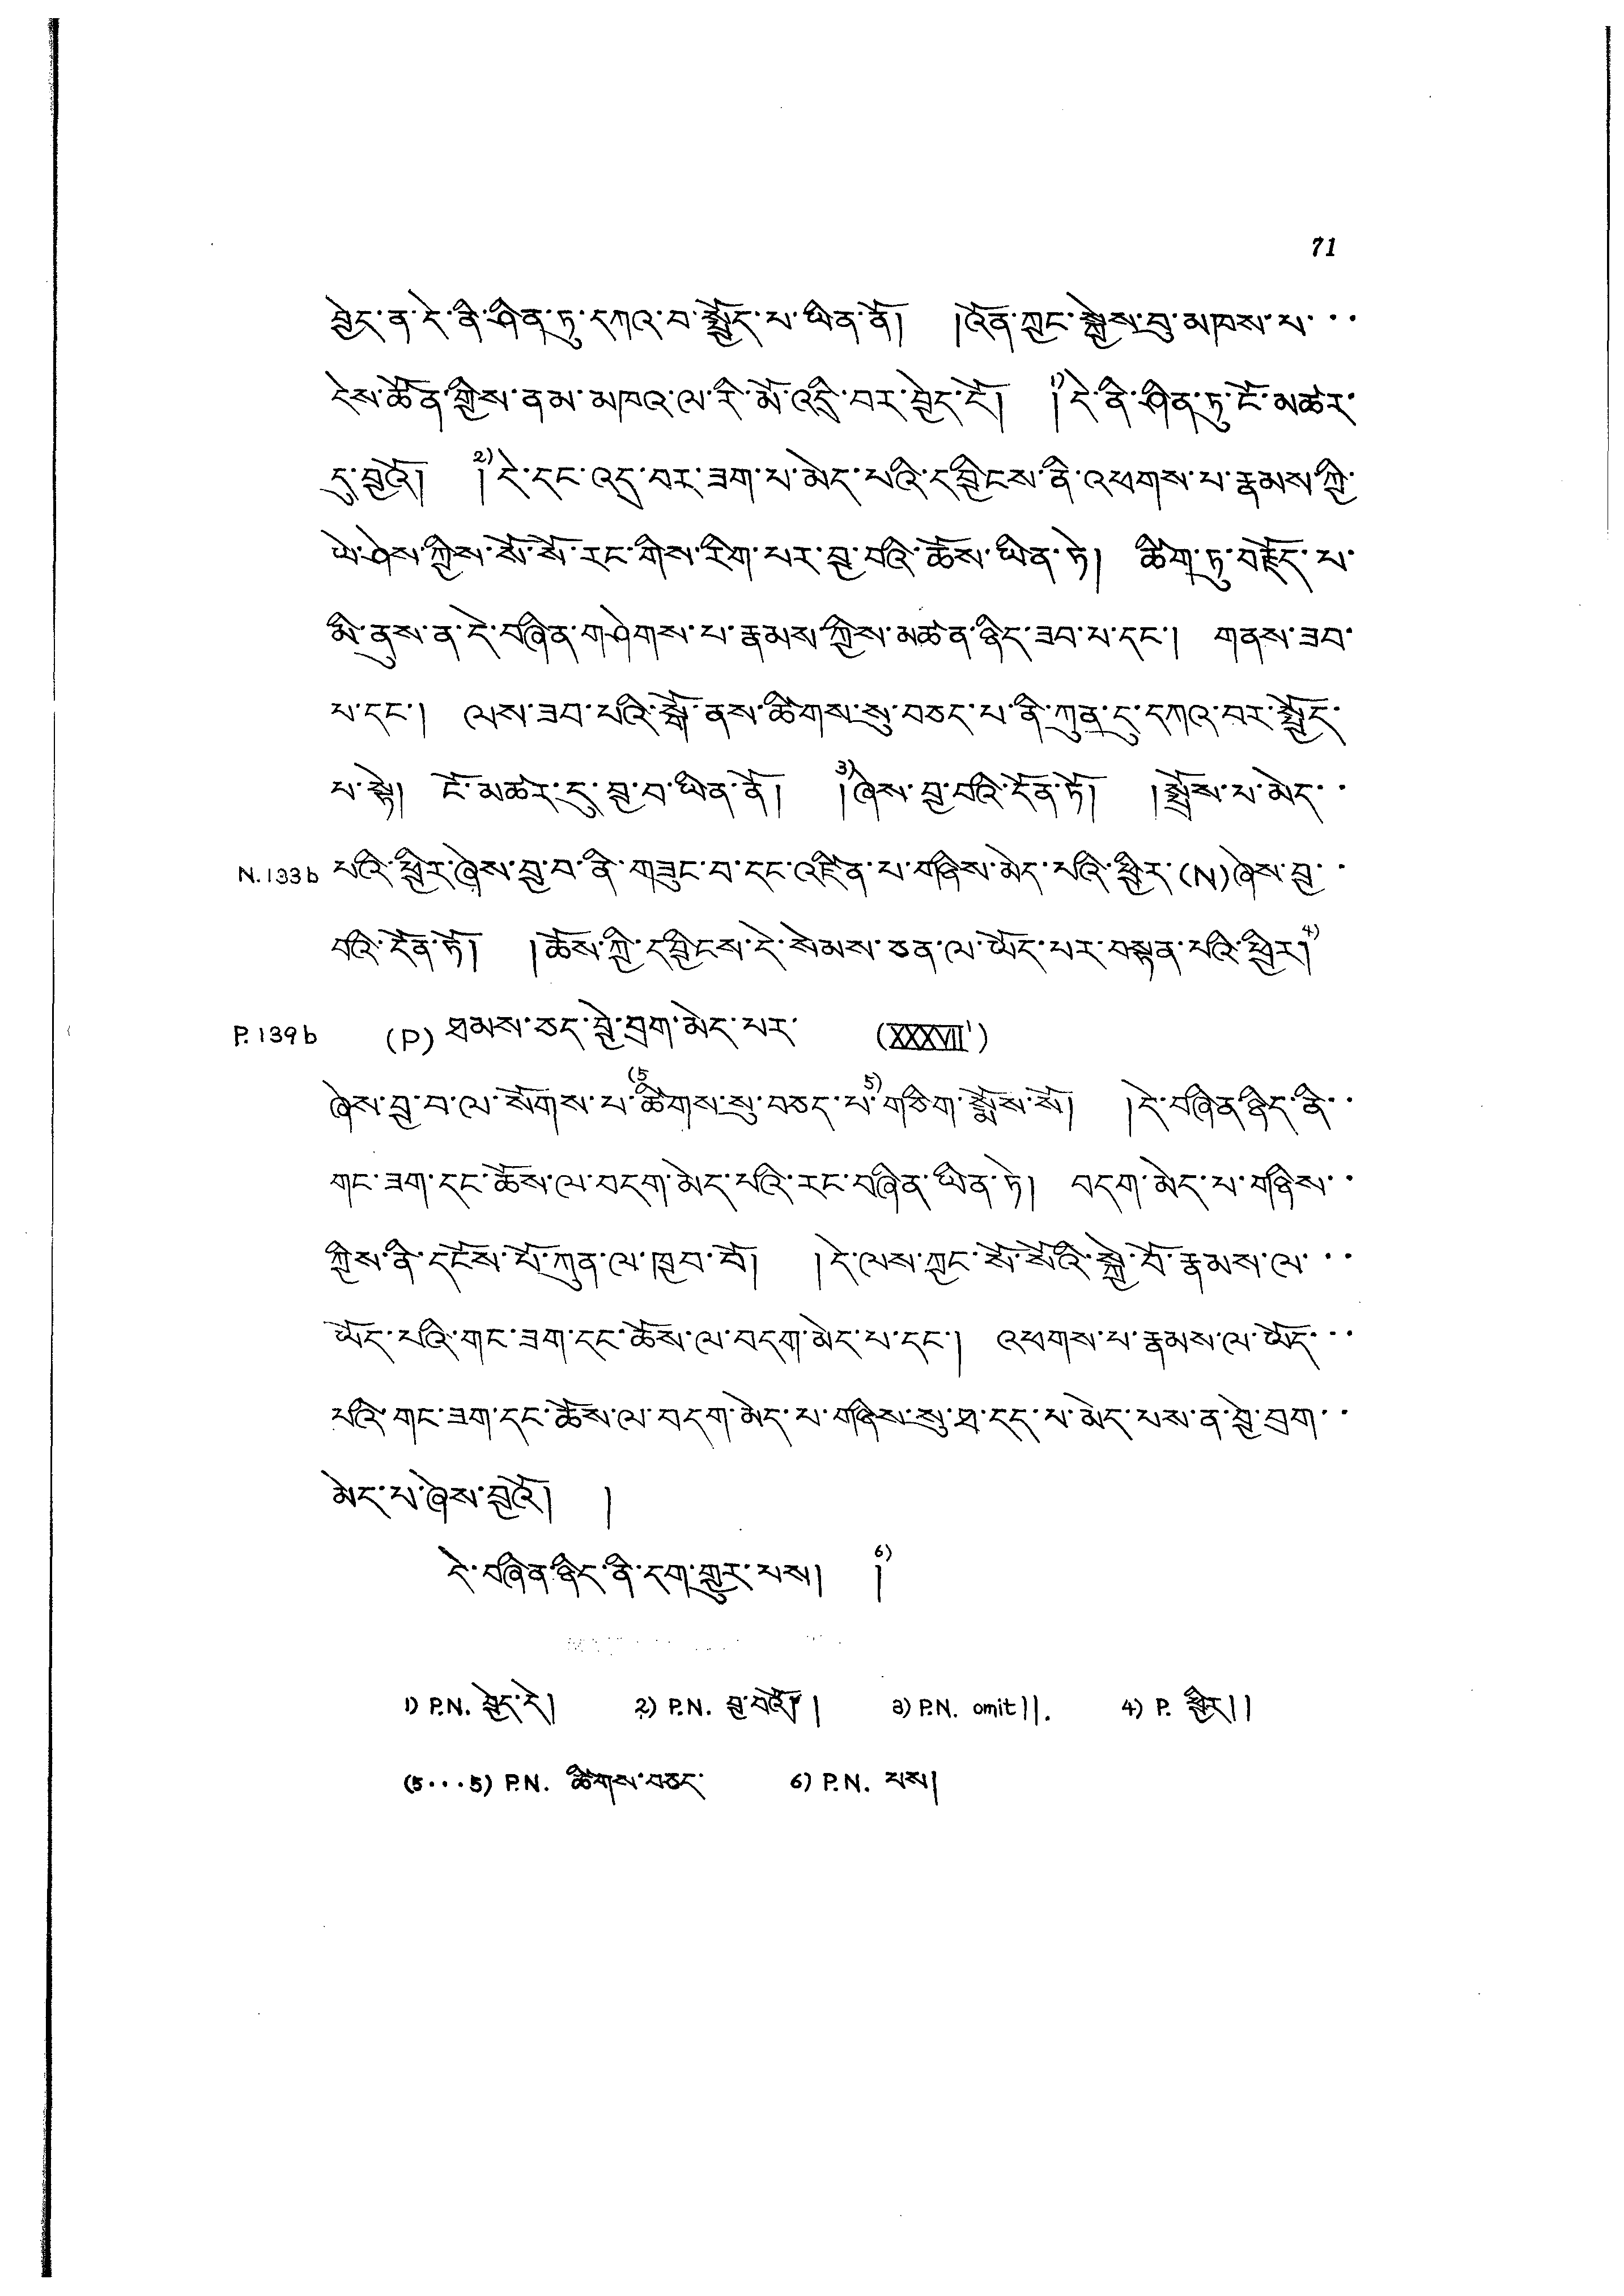 71
བྱེད་ན་དེ་ནི་ཤིན་ཏུ་དཀའ་བ་སྤྱོད་པ་ཡིན་ནོ། །འོན་ཀྱང་སྐྱེས་བུ་མཁས་པ་་་
དེས་ཚོན་གྱིས་ནམ་མཁའ་ལ་རི་མོ་འདྲི་བར་བྱེད་དོ། 1)།དེ་ནི་ཤིན་ཏུ་ངོ་མཚར་
དུ་བྱའོ། 2)།དེ་དང་འདྲ་བར་ཟག་པ་མེད་པའི་དབྱིངས་ནི་འཕགས་པ་རྣམས་ཀྱི་
ཡེ་ཤེས་ཀྱིས་སོ་སོ་རང་གིས་རིག་པར་བྱ་བའི་ཆོས་ཡིན་ཏེ། ཚིག་ཏུ་བརྗོད་པ་
མི་ནུས་ན་དེ་བཞིན་གཤེགས་པ་རྣམས་ཀྱིས་མཚན་ཉིད་ཟབ་པ་དང་། གནས་ཟབ་
པ་དང་། ལས་ཟབ་པའི་སྒོ་ནས་ཚིགས་སུ་བཅད་པ་ནི་ཀུན་དུ་དཀའ་བར་སྤྱོད་
པ་སྟེ། ངོ་མཚར་དུ་བྱ་བ་ཡིན་ནོ། 3)།ཞེས་བྱ་བའི་དོན་ཏོ། །སྤྲོས་པ་མེད་་
N.133b པའི་ཕྱིར་ཞེས་བྱ་བ་ནི་གཟུང་བ་དང་འཛིན་པ་གཉིས་མེད་པའི་ཕྱིར་(N)ཞེས་བྱ་་
བའི་དོན་ཏོ། །ཆོས་ཀྱི་དབྱིངས་དེ་སེམས་ཅན་ལ་ཡོད་པར་བསྟན་པའི་ཕྱིར།4)
P.139b (P) ཐམས་ཅད་བྱེ་བྲག་མེད་པར་ (XXXVII')
ཞེས་བྱ་བ་ལ་སོགས་པ་(5ཚིགས་སུ་བཅད་པ་5)གཅིག་སྨོས་སོ། །དེ་བཞིན་ཉིད་ནི་་
གང་ཟག་དང་ཆོས་ལ་བདག་མེད་པའི་རང་བཞིན་ཡིན་ཏེ། བདག་མེད་པ་གཉིས་་
ཀྱིས་ནི་དངོས་པོ་ཀུན་ལ་ཁྱབ་བོ། །དེ་ལས་ཀྱང་སོ་སོའི་སྐྱེ་བོ་རྣམས་ལ་་་
ཡོད་པའི་གང་ཟག་དང་ཆོས་ལ་བདག་མེད་པ་དང་། འཕགས་པ་རྣམས་ལ་ཡོད་་་
པའི་གང་ཟག་དང་ཆོས་ལ་བདག་མེད་པ་གཉིས་སུ་ཐ་དད་པ་མེད་པས་ན་བྱེ་བྲག་་
མེད་པ་ཞེས་བྱའོ། །
དེ་བཞིན་ཉིད་ནི་དག་གྱུར་པས། 6)།
1) P.N. བྱེད་དེ། 2) P.N. བྱ་བའོ། ། 3) P.N. omit།།. 4) P. ཕྱིར།།
(5...5) P.N. ཚིགས་བཅད་ 6) P.N. པས།